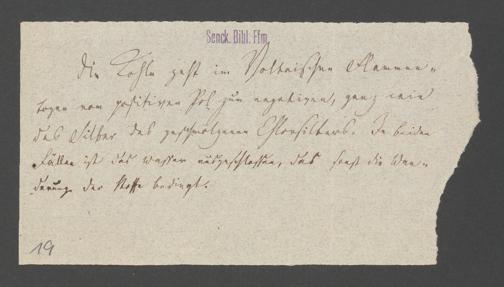 Senck. Bibl. Ffm.
Die Kohle geht im Voltaischen Flammen-
bogen vom positiven Pol zum negativen, ganz wie
das Silber des geschmolzenen Chlorsilbers. In beiden
Fällen ist das Wasser ausgeschlossen, das sonst die Wan-
derung der Stoffe bedingt.
19